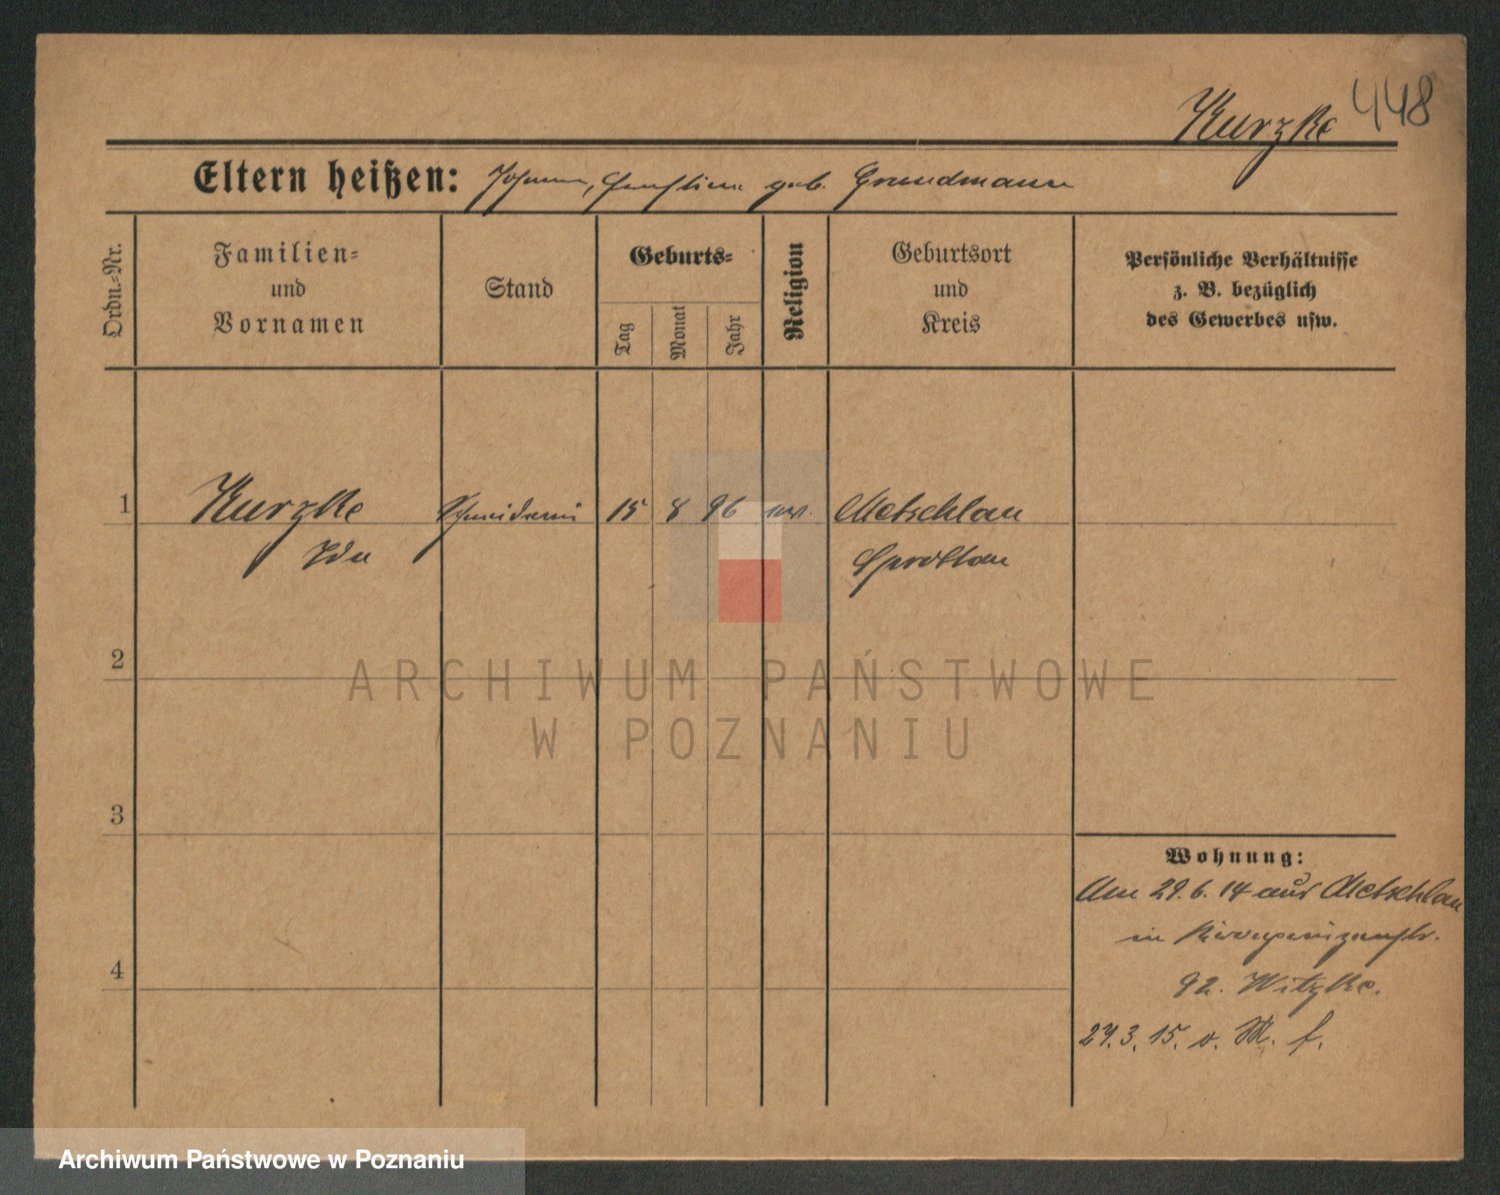 Kurzke 448
Eltern heißen: Johann, geb. Grundmann
Ordn.-Nr.
Familien-
und
Vornamen
Stand
Geburts-
Tag
Monat
Jahr
Religion
Geburtsort
und
Kreis
Persönliche Verhältnisse
z. B. bezüglich
des Gewerbes usw.
1 Kurzke Schneiderin 15 8 96 ev. Metschlau
Ida Sprottau
2
3
4
Wohnung:
Am 29. 6. 14 aus Metschlau
in
92. Witzke.
27. 3. 15. v. M. f.
ARCHIWUM PAŃSTWOWE
W POZNANIU
Archiwum Państwowe w Poznaniu